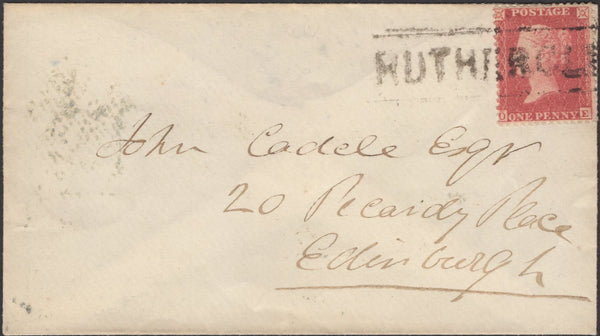 POSTAGE
RUTHERGLE
ONE PENNY
John Cadell Esqr
20 Picardy Place
Edinburgh